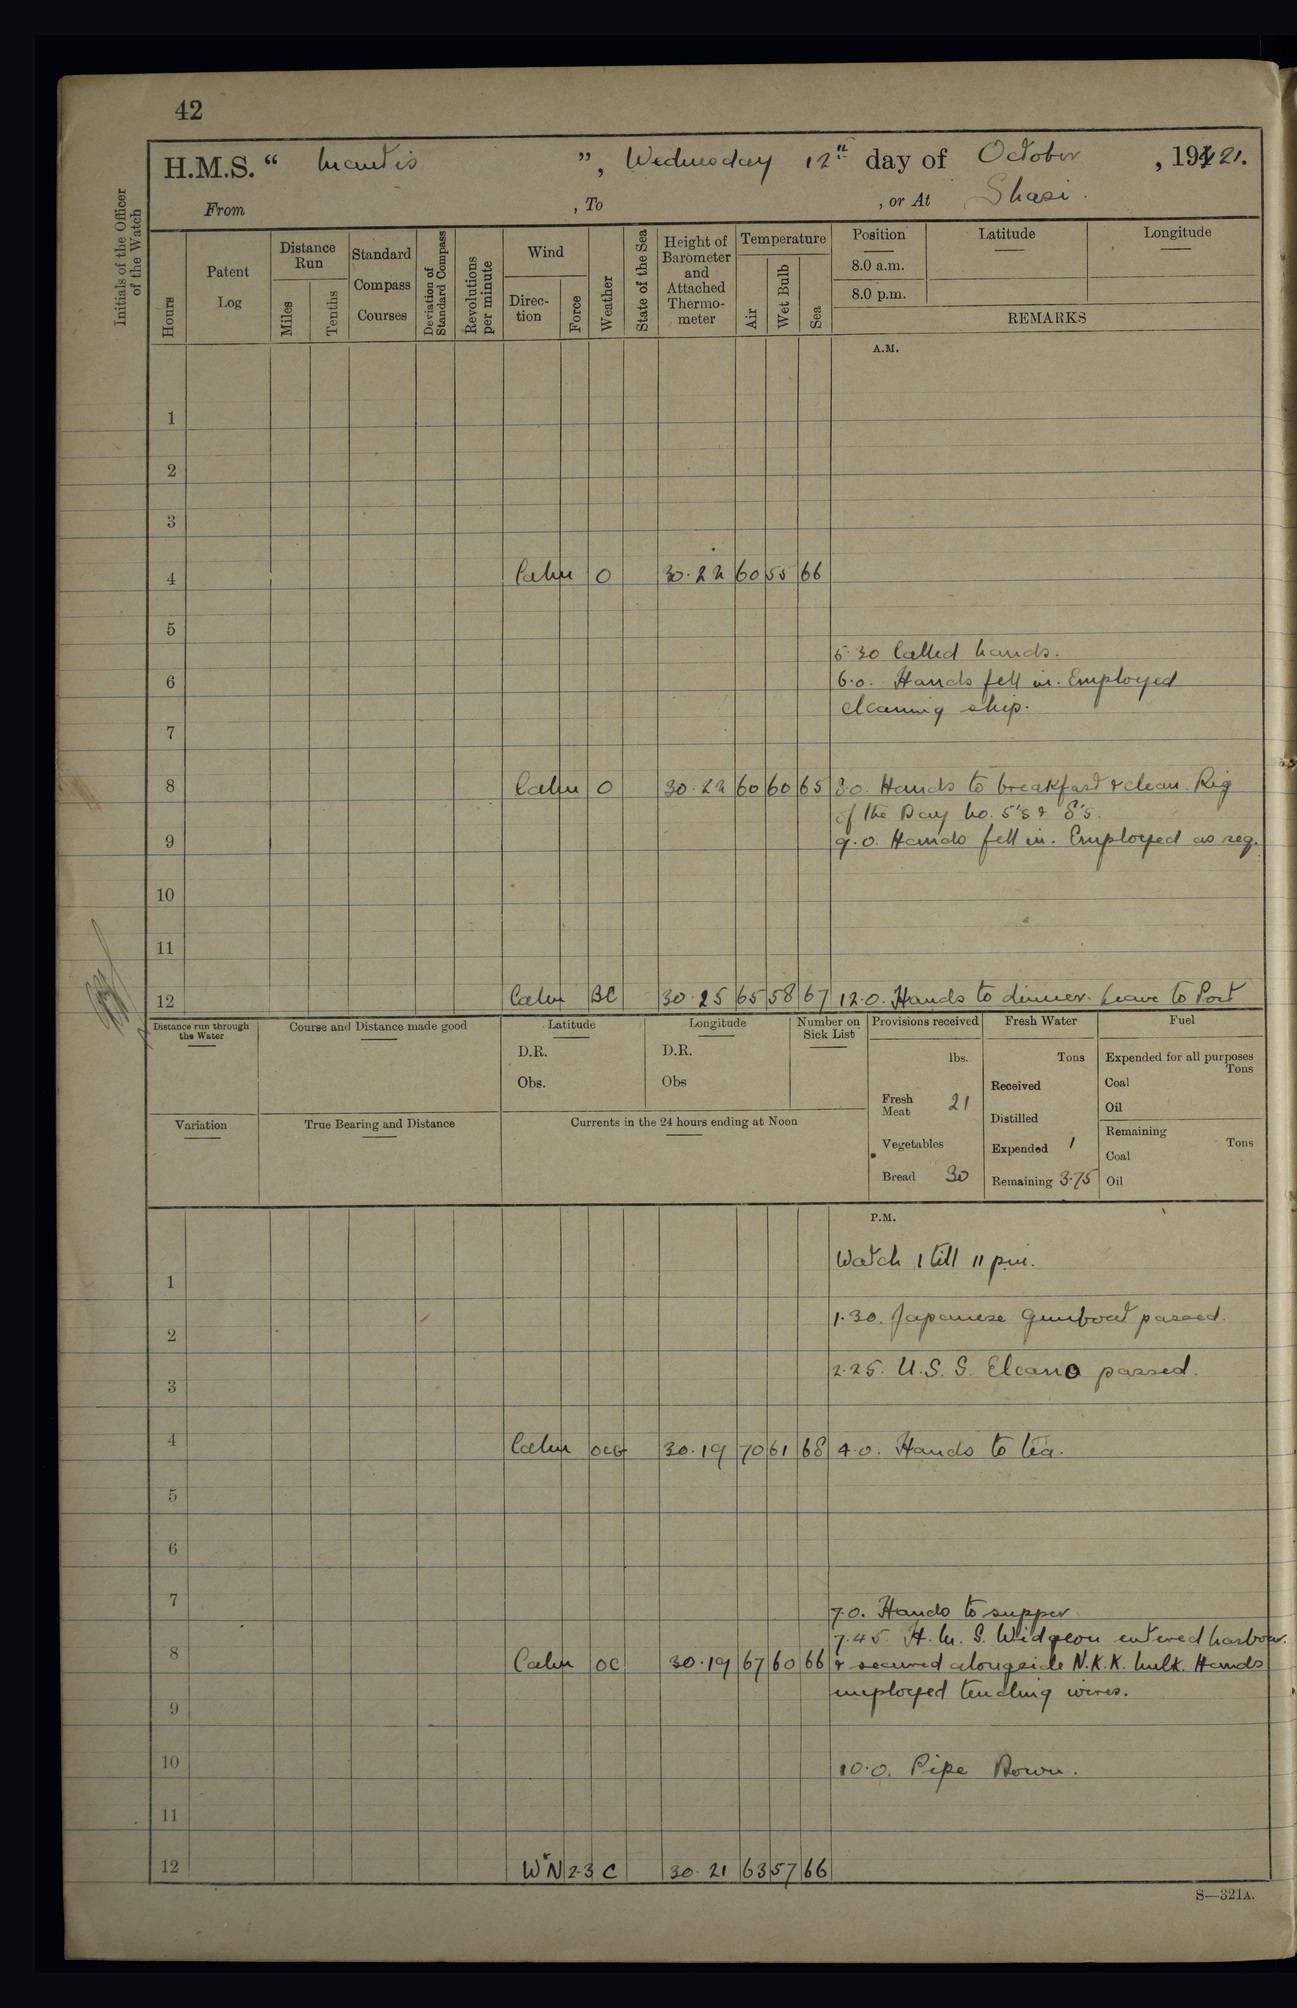 42
H.M.S. “ Mantis ”, Wednesday 12th day of October , 1921.
From , To , or At Shasi.
Initials of the Officer of the Watch
Hours
Patent Log
Distance Run
Miles
Tenths
Standard Compass Courses
Deviation of Standard Compass
Revolutions per minute
Wind
Direction
Force
Weather
State of the Sea
Height of Barometer and Attached Thermometer
Temperature
Air
Wet Bulb
Sea
Position
8.0 a.m.
8.0 p.m.
Latitude
Longitude
REMARKS
A.M.
1
2
3
4 Calm O 30.22 60 55 66
5
5.30 Called hands.
6 6.0. Hands fell in. Employed
cleaning ship.
7
8 Calm O 30.22 60 60 65 8.0. Hands to breakfast & clean. Rig
of the Day No. 5's & 8's.
9 9.0. Hands fell in. Employed as req.
10
11
12 Calm BC 30.25 65 58 67 12.0. Hands to dinner. Leave to Port
Distance run through the Water
Course and Distance made good
Latitude
D.R.
Obs.
Longitude
D.R.
Obs
Number on Sick List
Provisions received
lbs.
Fresh Meat 21
Vegetables
Bread 30
Fresh Water
Tons
Received
Distilled
Expended 1
Remaining 3.75
Fuel
Expended for all purposes
Tons
Coal
Oil
Remaining
Tons
Coal
Oil
Variation
True Bearing and Distance
Currents in the 24 hours ending at Noon
P.M.
Watch 1 till 11 pm.
1
1.30. Japanese gunboat passed.
2
2.25. U.S.S. Elcano passed.
3
4 Calm OCG 30.19 70 61 68 4.0. Hands to tea.
5
6
7
7.0. Hands to supper.
7.45. H.M.S. Widgeon entered harbour.
8 Calm OC 30.19 67 60 66 & secured alongside N.K.K. hulk. Hands
employed tending wires.
9
10 10.0. Pipe Down.
11
12 W'N 2-3 C 30.21 63 57 66
S—321A.